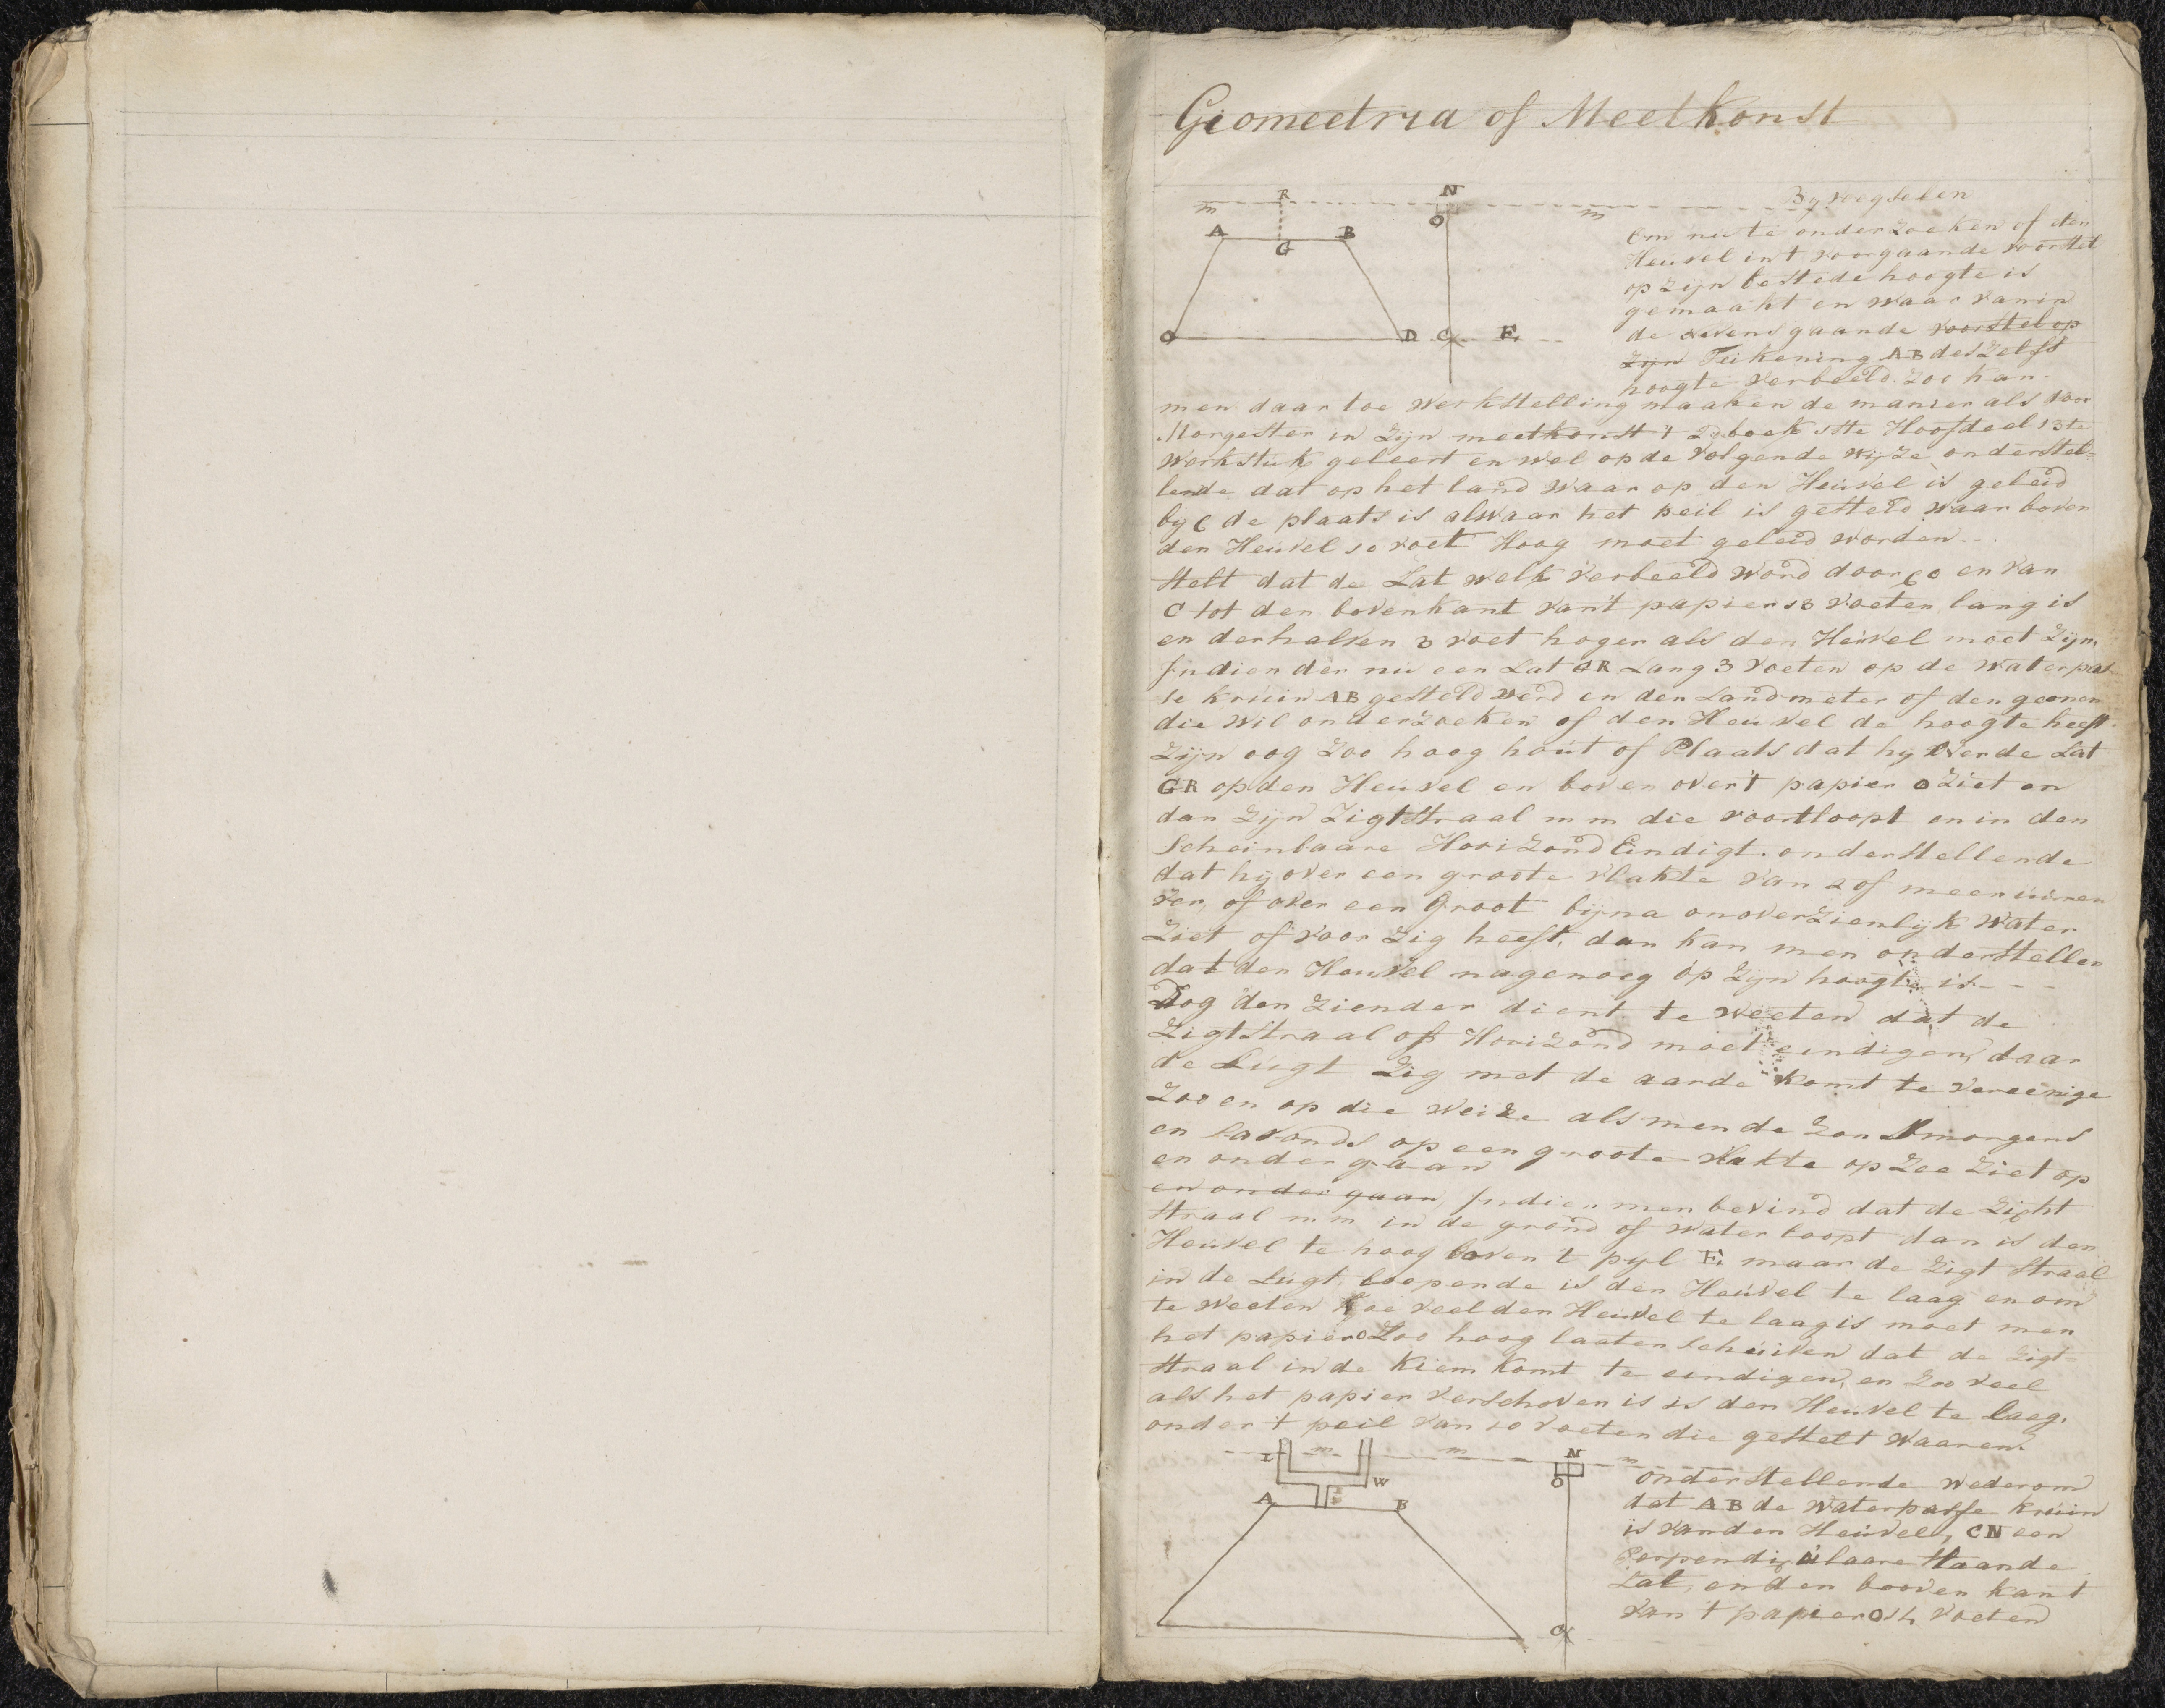 Geometria of Meetkonst
Byvoegselen
R
N
m
m
O
A
B
G
D
C
E
Om nu te onderzoeken of den
Heuvel in t voorgaande voorstel
op zijn bestede hoogte is
gemaakt en waar van in
de nevensgaande voorstel op
zijn Teikening AB deszelfs
hoogte verbeeld zoo kan
men daar toe werkstelling maaken de manier als door
Morgester in zijn meetkonst 't 2de boek 1ste Hoofdeel 13te
Werkstuk geleert en wel op de volgende wijze onderstel=
lende dat op het land waar op den Heuvel is geleid
by C de plaats is alwaar het peil is gesteld waar boven
den Heuvel 10 voet Hoog moet geleid worden
Stelt dat de Lat welk verbeeld word door CO en van
C tot den bovenkant van't papier 13 voeten lang is
en derhalven 3 voet hoger als den Heuvel moet zijn,
Indien der nu een Lat GR Lang 3 voeten op de waterpas
se kruin AB gesteld werd en den Landmeter of den geenen
die wil onderzoeken of den Heuvel de hoogte heeft
zijn oog zoo hoog hout of Plaats dat hy over de Lat
GR op den Heuvel en boven over't papier O ziet en
dan zijn zigtstraal m m die voortloopt en in den
Scheinbaare Hoorizond Eindigt. onderstellende
dat hy over een groote vlakte van 2 of meer uuren
ver, of over een Groot bijna onoverzienlijk water
ziet of voor zig heeft, dan kan men onderstellen
dat den Heuvel nagenoeg op zijn hoogte is - - -
Dog den ziender dient te weeten dat de
zigtstraal off Horizond moet eindigen, daar
de Lugt zig met de aarde komt te vereenige
zoo en op die weize als men de zon Smorgens
en savonds op een groote vlakte op zee ziet op
en onder gaan
en onder gaan Indien men bevind dat de zight
straal m m in de grond of water loopt dan is den
Heuvel te hoog boven 't pyl E. maar de zigt straal
in de Lugt loopende is den Heuvel te laag en om
te weeten hoe veel den Heuvel te laag is moet men
het papier O zoo hoog laaten schuiven dat de zigt=
straal in de kiem komt te eindigen, en zoo veel
als het papier verschoven is is den Heuvel te laag.
onder 't peil van 10 voeten die gestelt waaren.
I
m
m
N
m
O
W
A
B
C
onderstellende wederom
dat AB de waterpasse kruin
is van den Heuvel, CN een
Perpendiculaare staande
Lat, en den booven kant
van 't papier O 14 voeten